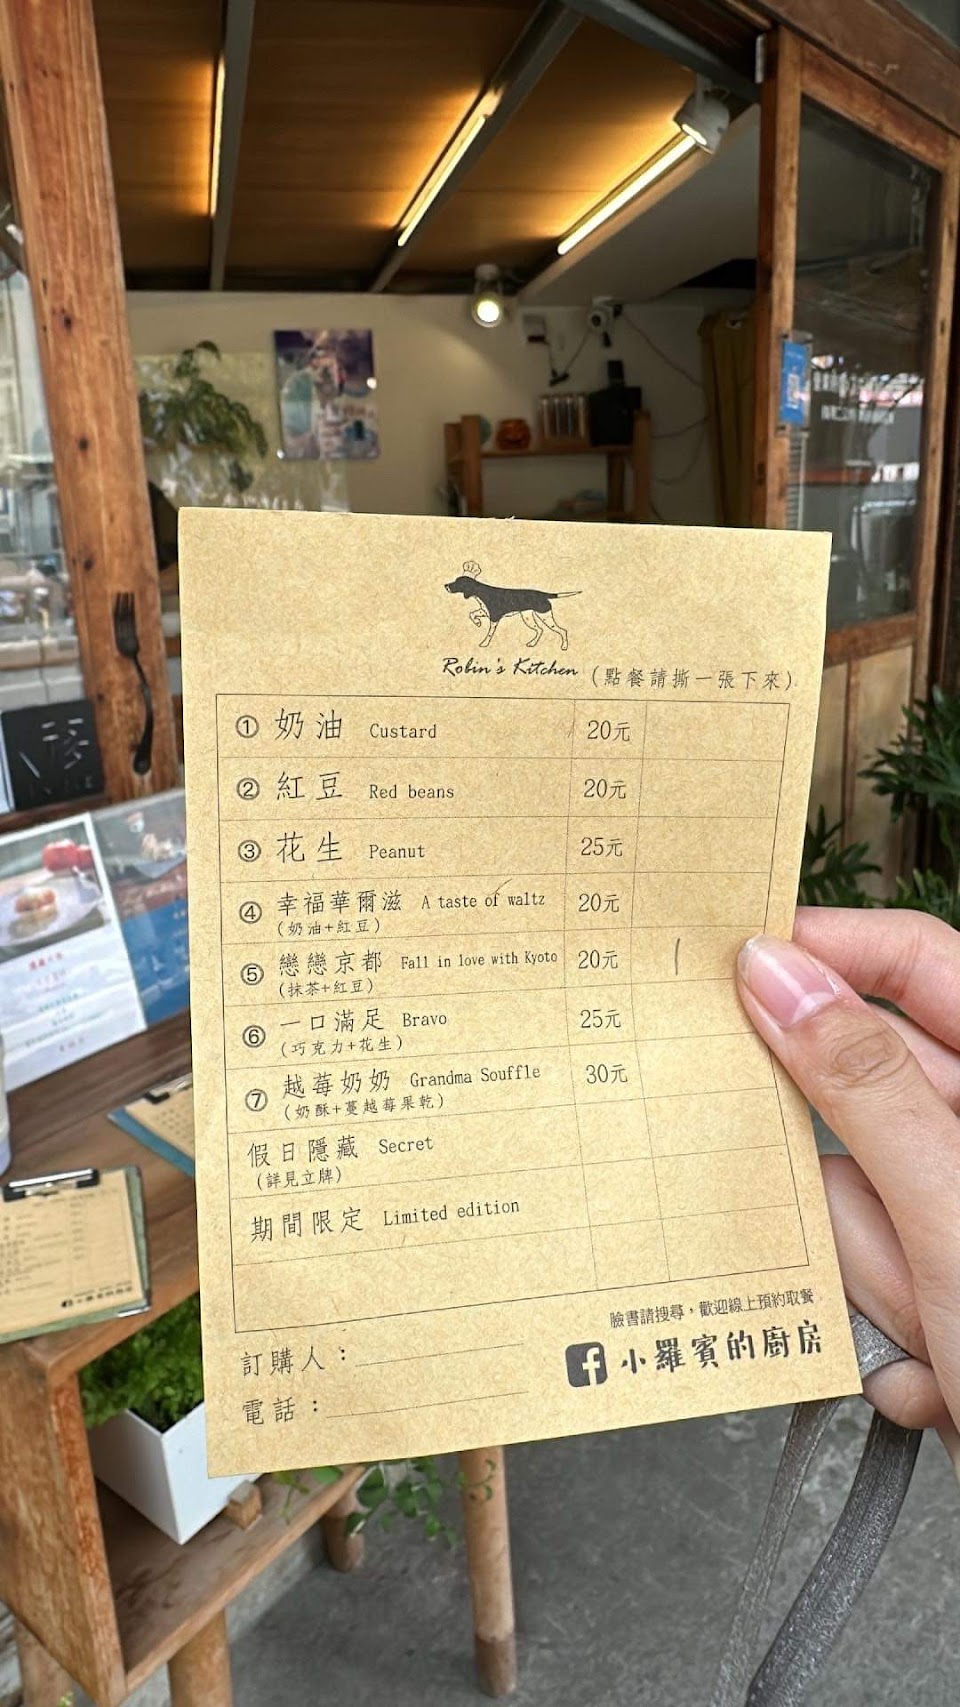 Robin's Kitchen (點餐請撕一張下來)
① 奶油 Custard 20元
② 紅豆 Red beans 20元
③ 花生 Peanut 25元
④ 幸福華爾滋 A taste of waltz 20元
(奶油+紅豆)
⑤ 戀戀京都 Fall in love with Kyoto 20元 1
(抹茶+紅豆)
⑥ 一口滿足 Bravo 25元
(巧克力+花生)
⑦ 越莓奶奶 Grandma Souffle 30元
(奶酥+蔓越莓果乾)
假日隱藏 Secret
(詳見立牌)
期間限定 Limited edition
訂購人：
電話：
臉書請搜尋，歡迎線上預約取餐
小羅賓的廚房
小羅賓的廚房